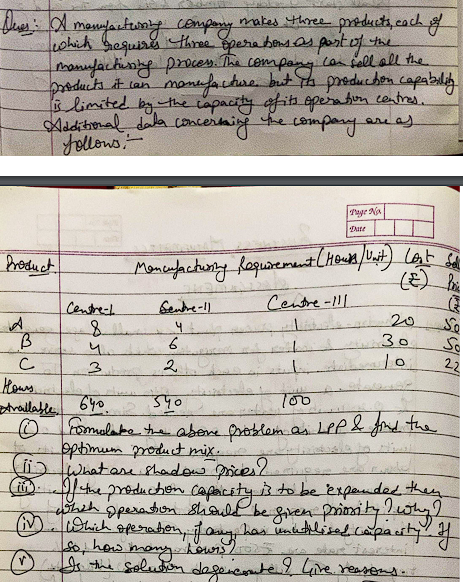 Ques: A manufacturing company makes three products, each of
which requires three operations as part of the
manufacturing process. The company can sell all the
products it can manufacture but its production capability
is limited by the capacity of its operation centres.
Additional data concerning the company are as
follows:-
Page No.
Date
Product Manufacturing Requirement (Hours/Unit) Cost
(₹)
Centre-I Centre-II Centre-III
A 8 4 1 20
B 4 6 1 30
C 3 2 1 10 22
Hours
Available 640 540 100
(i) Formulate the above problem as LPP & find the
optimum product mix.
(ii) What are shadow prices?
(iii) If the production capacity is to be expanded then
which operation should be given priority? Why?
(iv) Which operation, if any has unutilised capacity. If
so, how many hours?
(v) Is the solution degenerate? Give reasons.